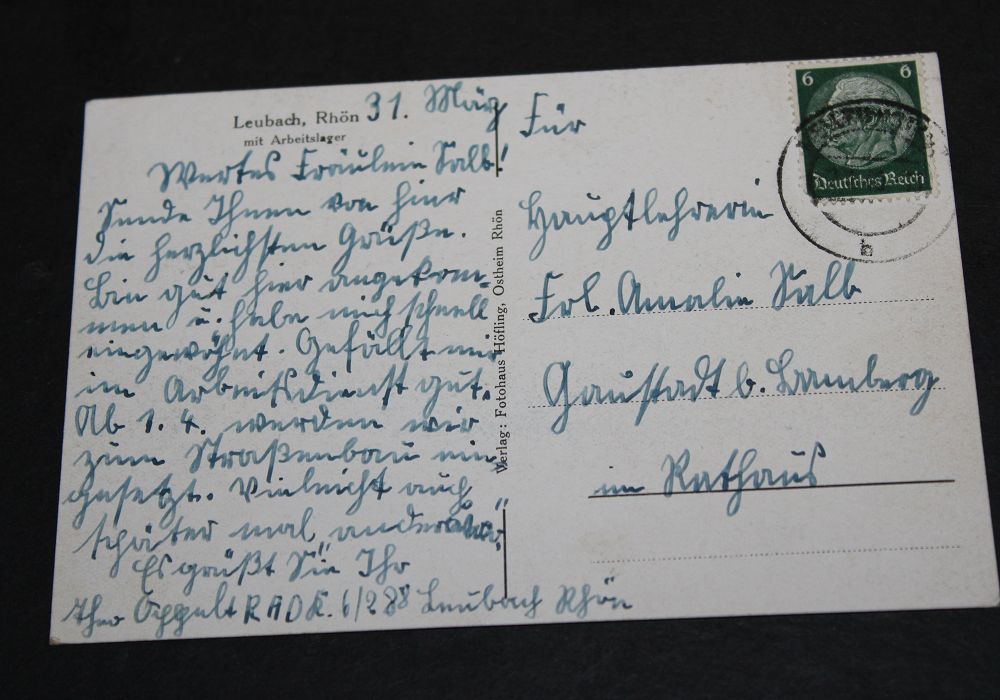 Leubach, Rhön 31. März
mit Arbeitslager
Wertes Fräulein Salb!
Sende Ihnen von hier
die herzlichsten Grüße.
Bin gut hier angekom-
men u. habe mich schnell
eingewöhnt. Gefällt mir
im Arbeitsdienst gut.
Ab 1. 4. werden wir
zum Straßenbau ein-
gesetzt. Vielleicht auch
später mal
Es grüßt Sie Ihr
R A D K. 6/288 Leubach Rhön
Verlag: Fotohaus Höfling, Ostheim Rhön
Für
Hauptlehrerin
Frl. Amalie Salb
Gaustadt b. Bamberg
im Rathaus
6 6
Deutsches Reich
b